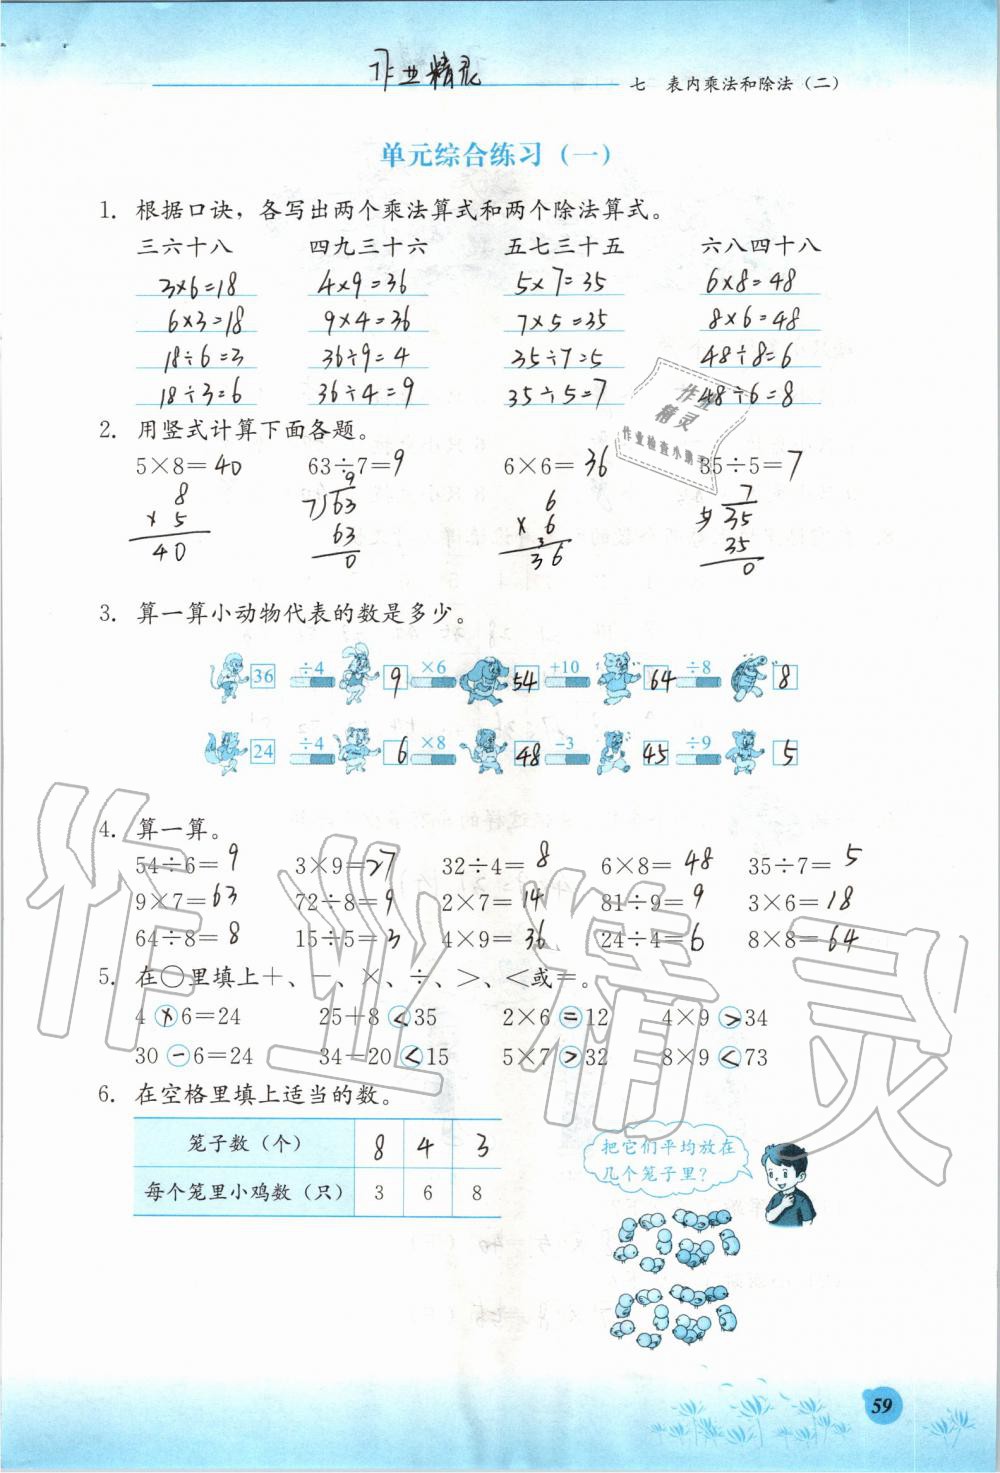 作业精灵
七 表内乘法和除法（二）
单元综合练习（一）
1. 根据口诀，各写出两个乘法算式和两个除法算式。
三六十八 四九三十六 五七三十五 六八四十八
3×6=18 4×9=36 5×7=35 6×8=48
6×3=18 9×4=36 7×5=35 8×6=48
18÷6=3 36÷9=4 35÷7=5 48÷8=6
18÷3=6 36÷4=9 35÷5=7 48÷6=8
作业
精灵
作业检查小助手
2. 用竖式计算下面各题。
5×8=40 63÷7=9 6×6=36 35÷5=7
8 9 6 7
× 5 7 63 × 6 5 35
40 63 3 36 35
0 0
3. 算一算小动物代表的数是多少。
36 ÷4 9 ×6 54 +10 64 ÷8 8
24 ÷4 6 ×8 48 −3 45 ÷9 5
4. 算一算。
54÷6=9 3×9=27 32÷4=8 6×8=48 35÷7=5
9×7=63 72÷8=9 2×7=14 81÷9=9 3×6=18
64÷8=8 15÷5=3 4×9=36 24÷4=6 8×8=64
5. 在○里填上＋、－、×、÷、＞、＜或＝。
4×6=24 25+8<35 2×6=12 4×9>34
30−6=24 34−20<15 5×7>32 8×9<73
6. 在空格里填上适当的数。
笼子数（个） 8 4 3
每个笼里小鸡数（只） 3 6 8
把它们平均放在
几个笼子里？
作业精灵
59